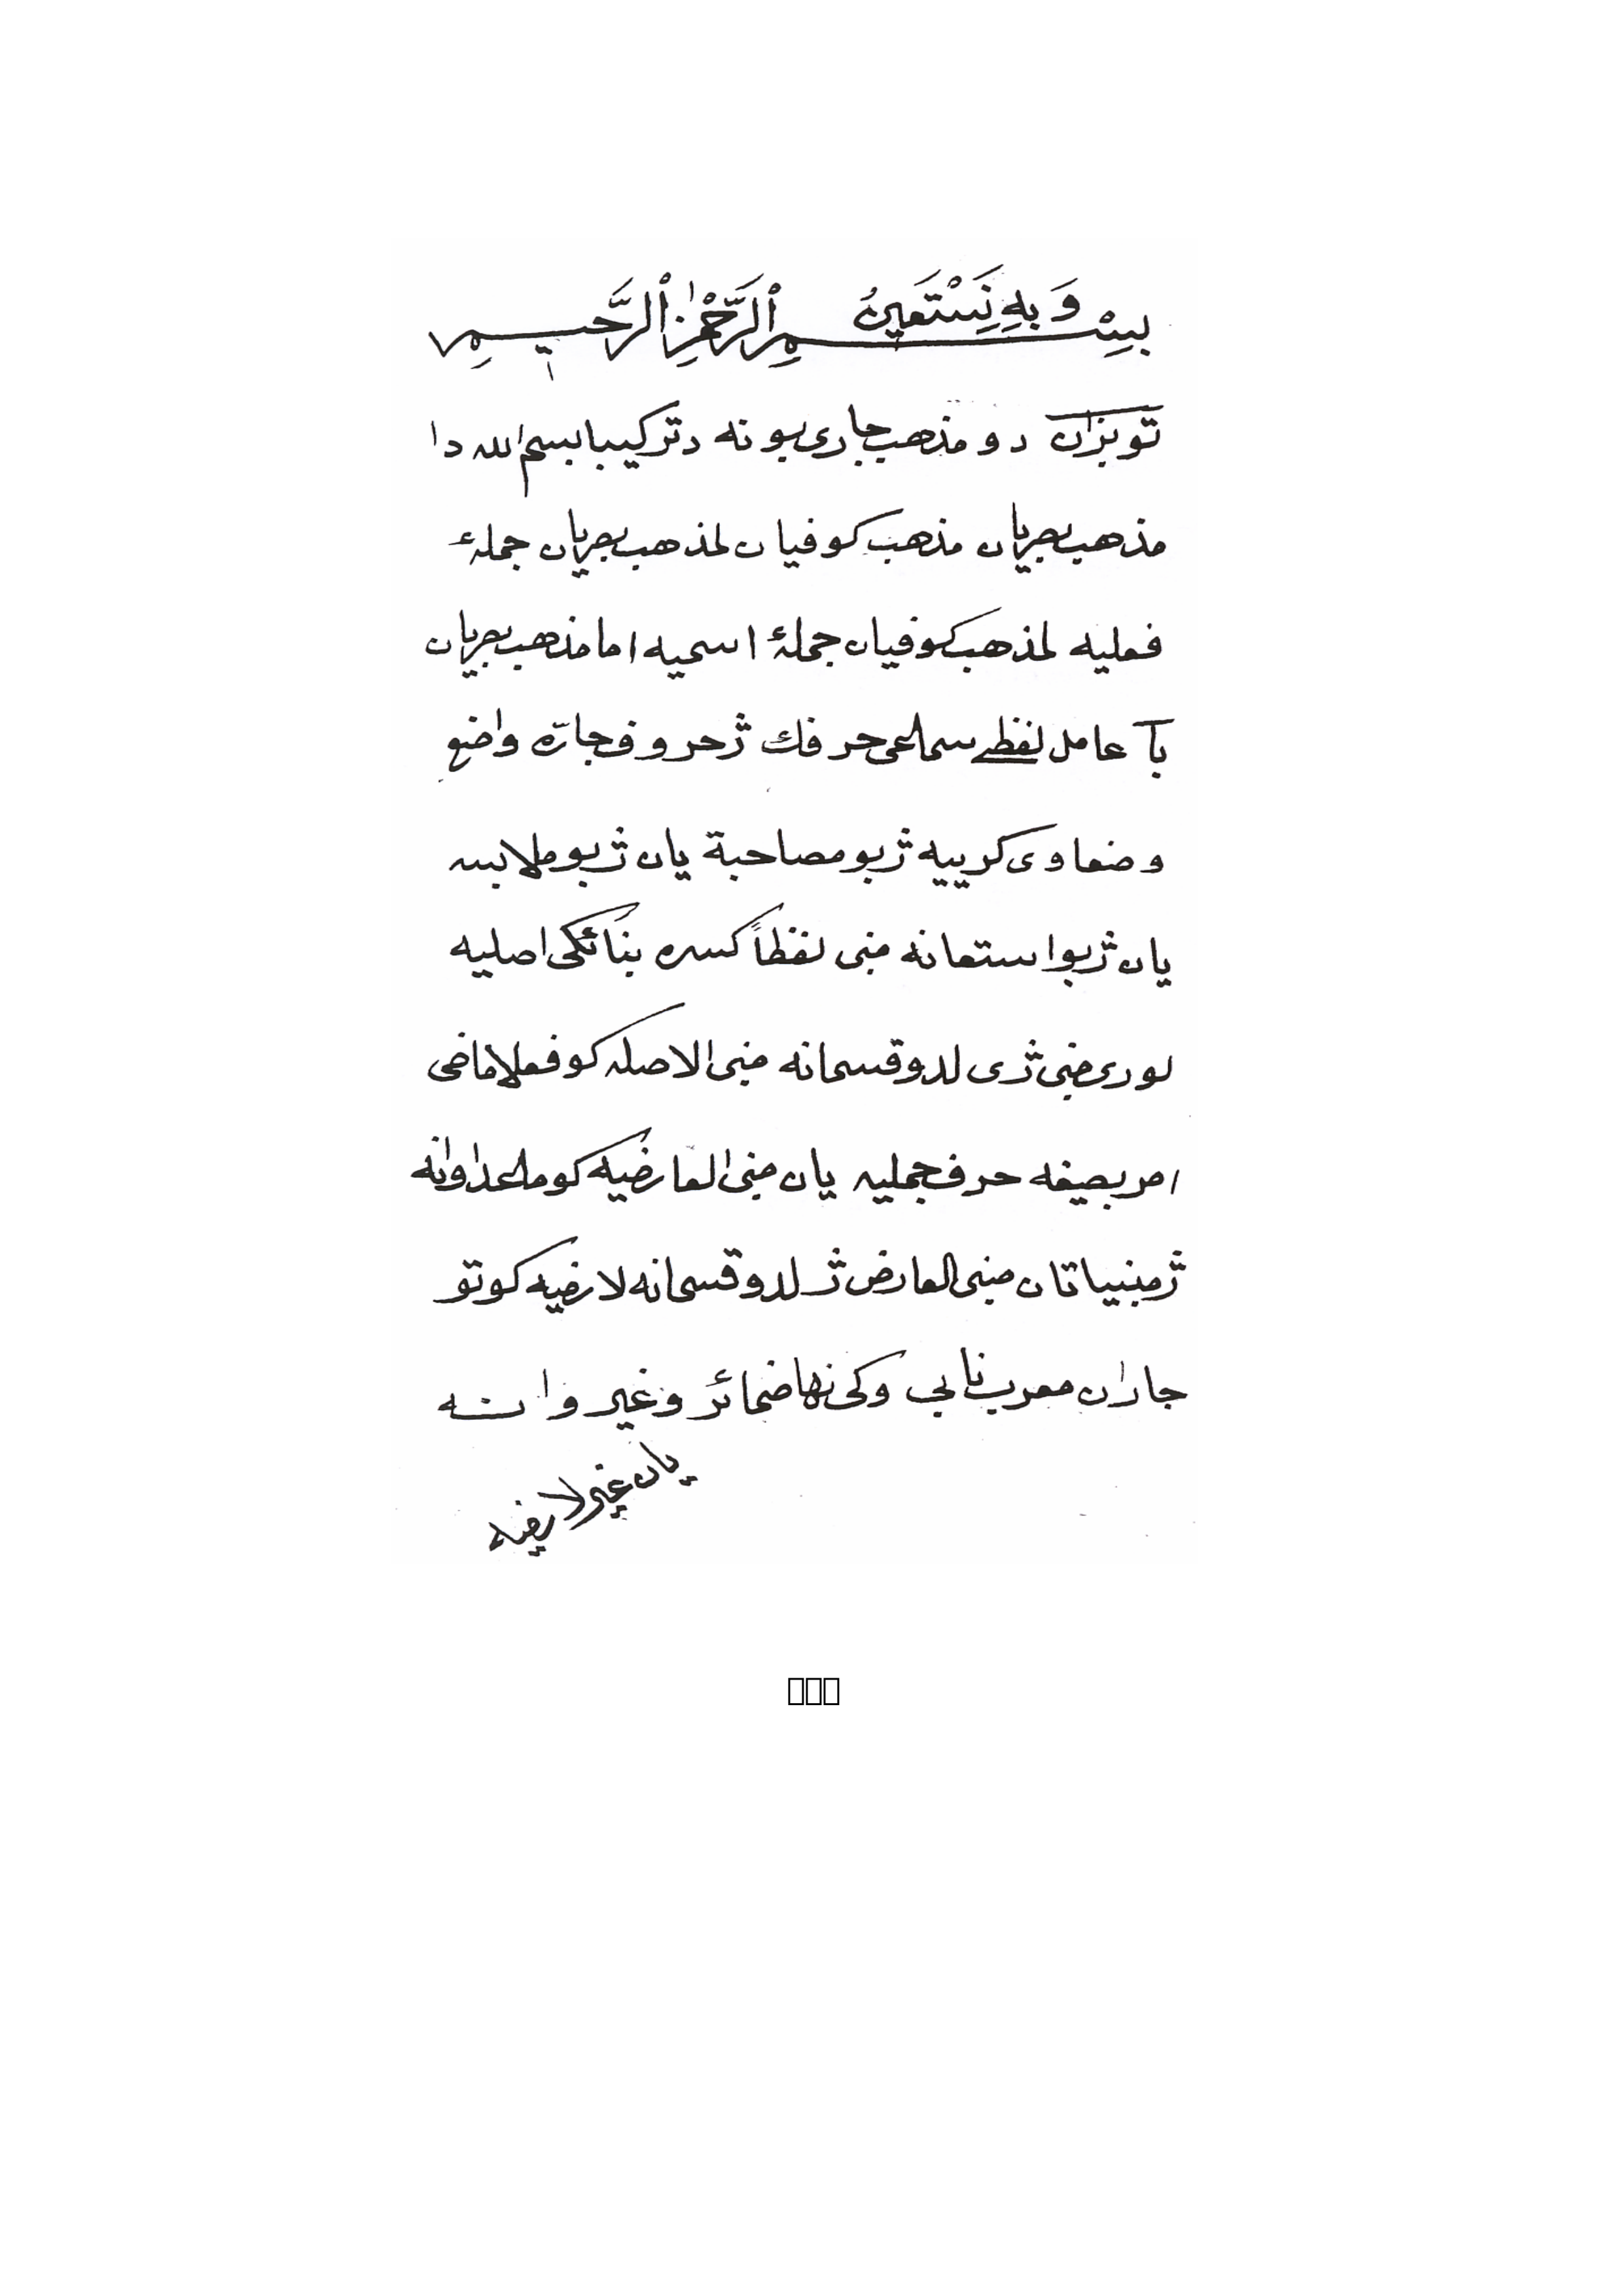 وَ بِهِ نَسْتَعِينُ
بِسْمِ الرَّحْمٰنِ الرَّحِيمِ
تو بزان دو مذهب جاری بونه د ترکیبا بسم الله دا
مذهب بصریان مذهب کوفیان لمذهب بصریان جملۀ
فعلیه لمذهب کوفیان جملۀ اسمیه اما مذهب بصریان
بآ عامل لفظی سماعی حرفك ژ حروف جارّه واضع
وضعا وی کرییه ژبو مصاحبة یان ژبو ملابسه
یان ژبو استعانه مبنی لفظاً کسره بنائکی اصلیه
لوری مبنی ژی لدو قسمانه مبنی الاصله کو فعلا ماضی
امر بصیغه حرف جملیه یان مبنی العارضیه کو ماعدا وانه
ژ مبنییاتان مبنی العارض ژ لدو قسمانه لارضیه کو تو
جاران معرب نابی وکی نها ضمائر و غیر وانه
یان غیر لارضیه